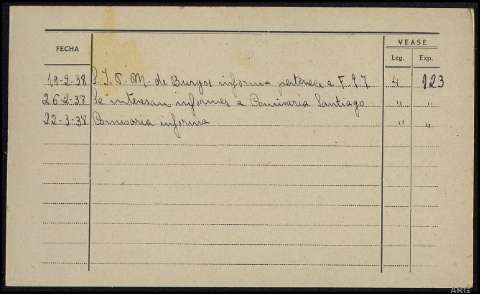 FECHA VEASE
Leg. Exp.
19-2-38 S.I.P.M. de Burgos informa pertenece a F.E.T. 4 123
26-2-38 Se interesan informes a Comisaria Santiago " "
22-3-38 Comisaria informa " "